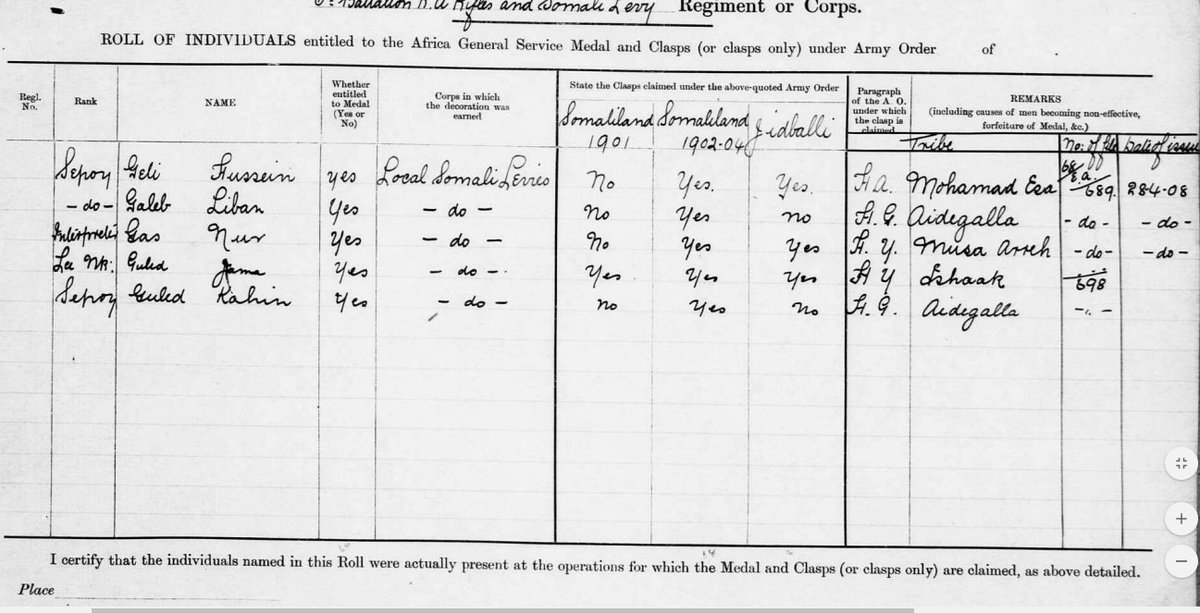 6th Battalion K.A Rifles and Somali Levy Regiment or Corps.
ROLL OF INDIVIDUALS entitled to the Africa General Service Medal and Clasps (or clasps only) under Army Order of .
Regl. No. Rank NAME Whether entitled to Medal (Yes or No) Corps in which the decoration was earned State the Clasps claimed under the above-quoted Army Order Paragraph of the A. O. under which the clasp is claimed REMARKS (including causes of men becoming non-effective, forfeiture of Medal, &c.)
Somaliland 1901 Somaliland 1902-04 Jidballi Tribe No: of Date of issue
Sepoy Geli Hussein yes Local Somali Levies No Yes. Yes. H A. Mohamad Esa 68/ 689. 28-4-08
- do - Galeb Liban Yes - do - no Yes no H. G. Aidegalla - do - - do -
Interpreter Gas Nur Yes - do - No Yes Yes H. Y. Musa Arreh - do - - do -
Lce Nk: Guled Jama Yes - do - . Yes Yes Yes H Y Ishaak 698
Sepoy Guled Kahin Yes - do - no Yes no H. G. Aidegalla - " -
I certify that the individuals named in this Roll were actually present at the operations for which the Medal and Clasps (or clasps only) are claimed, as above detailed.
Place